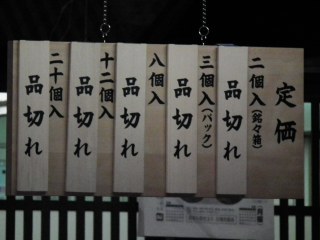 定価
二個入(銘々箱)
品切れ
三個入(パック)
品切れ
八個入
品切れ
十二個入
品切れ
二十個入
品切れ